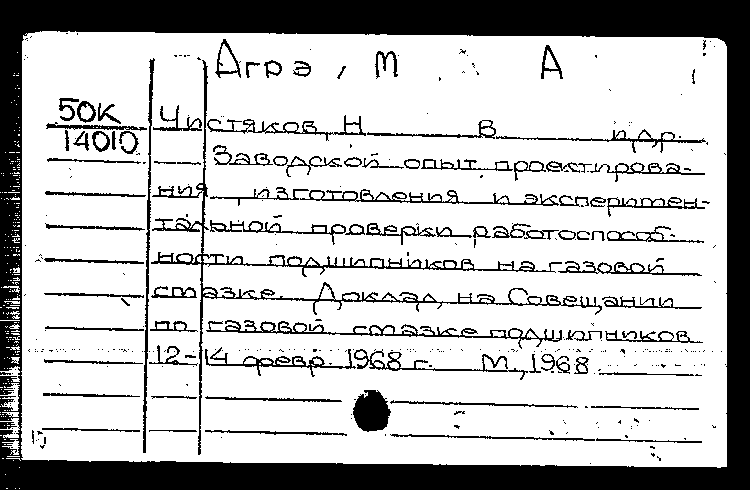 Агрэ, М А
50К
14010
Чистяков, Н В и др.
Заводской опыт проектирова-
ния, изготовления и эксперимен-
тальной проверки работоспособ-
ности подшипников на газовой
смазке. Доклад на Совещании
по газовой смазке подшипников
12-14 февр. 1968 г. М., 1968